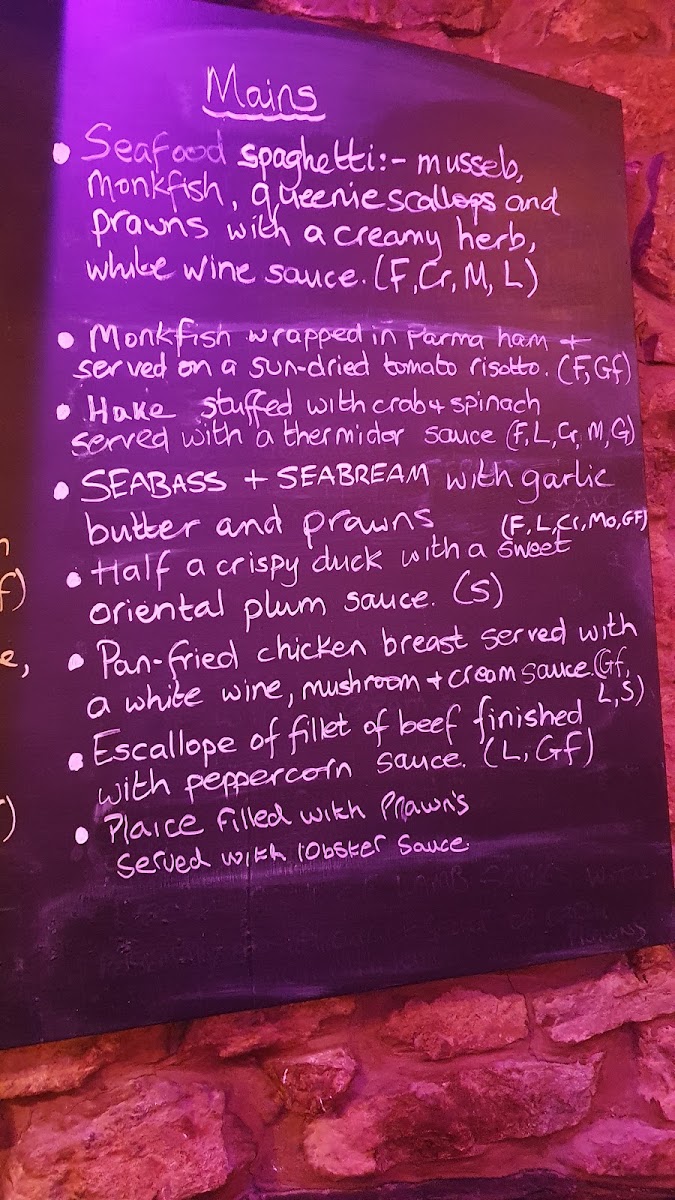 Mains
• Seafood spaghetti:- mussels,
monkfish, queenie scallops and
prawns with a creamy herb,
white wine sauce. (F, Cr, M, L)
• Monkfish wrapped in Parma ham +
served on a sun-dried tomato risotto. (F, Gf)
• Hake stuffed with crab + spinach
served with a thermidor sauce (F, L, Cr, M, G)
• SEABASS + SEABREAM with garlic
butter and prawns (F, L, Cr, Mo, GF)
• Half a crispy duck with a sweet
oriental plum sauce. (S)
• Pan-fried chicken breast served with
a white wine, mushroom + cream sauce. (Gf,
L, S)
• Escallope of fillet of beef finished
with peppercorn sauce. (L, Gf)
• Plaice filled with Prawn's
served with lobster sauce.